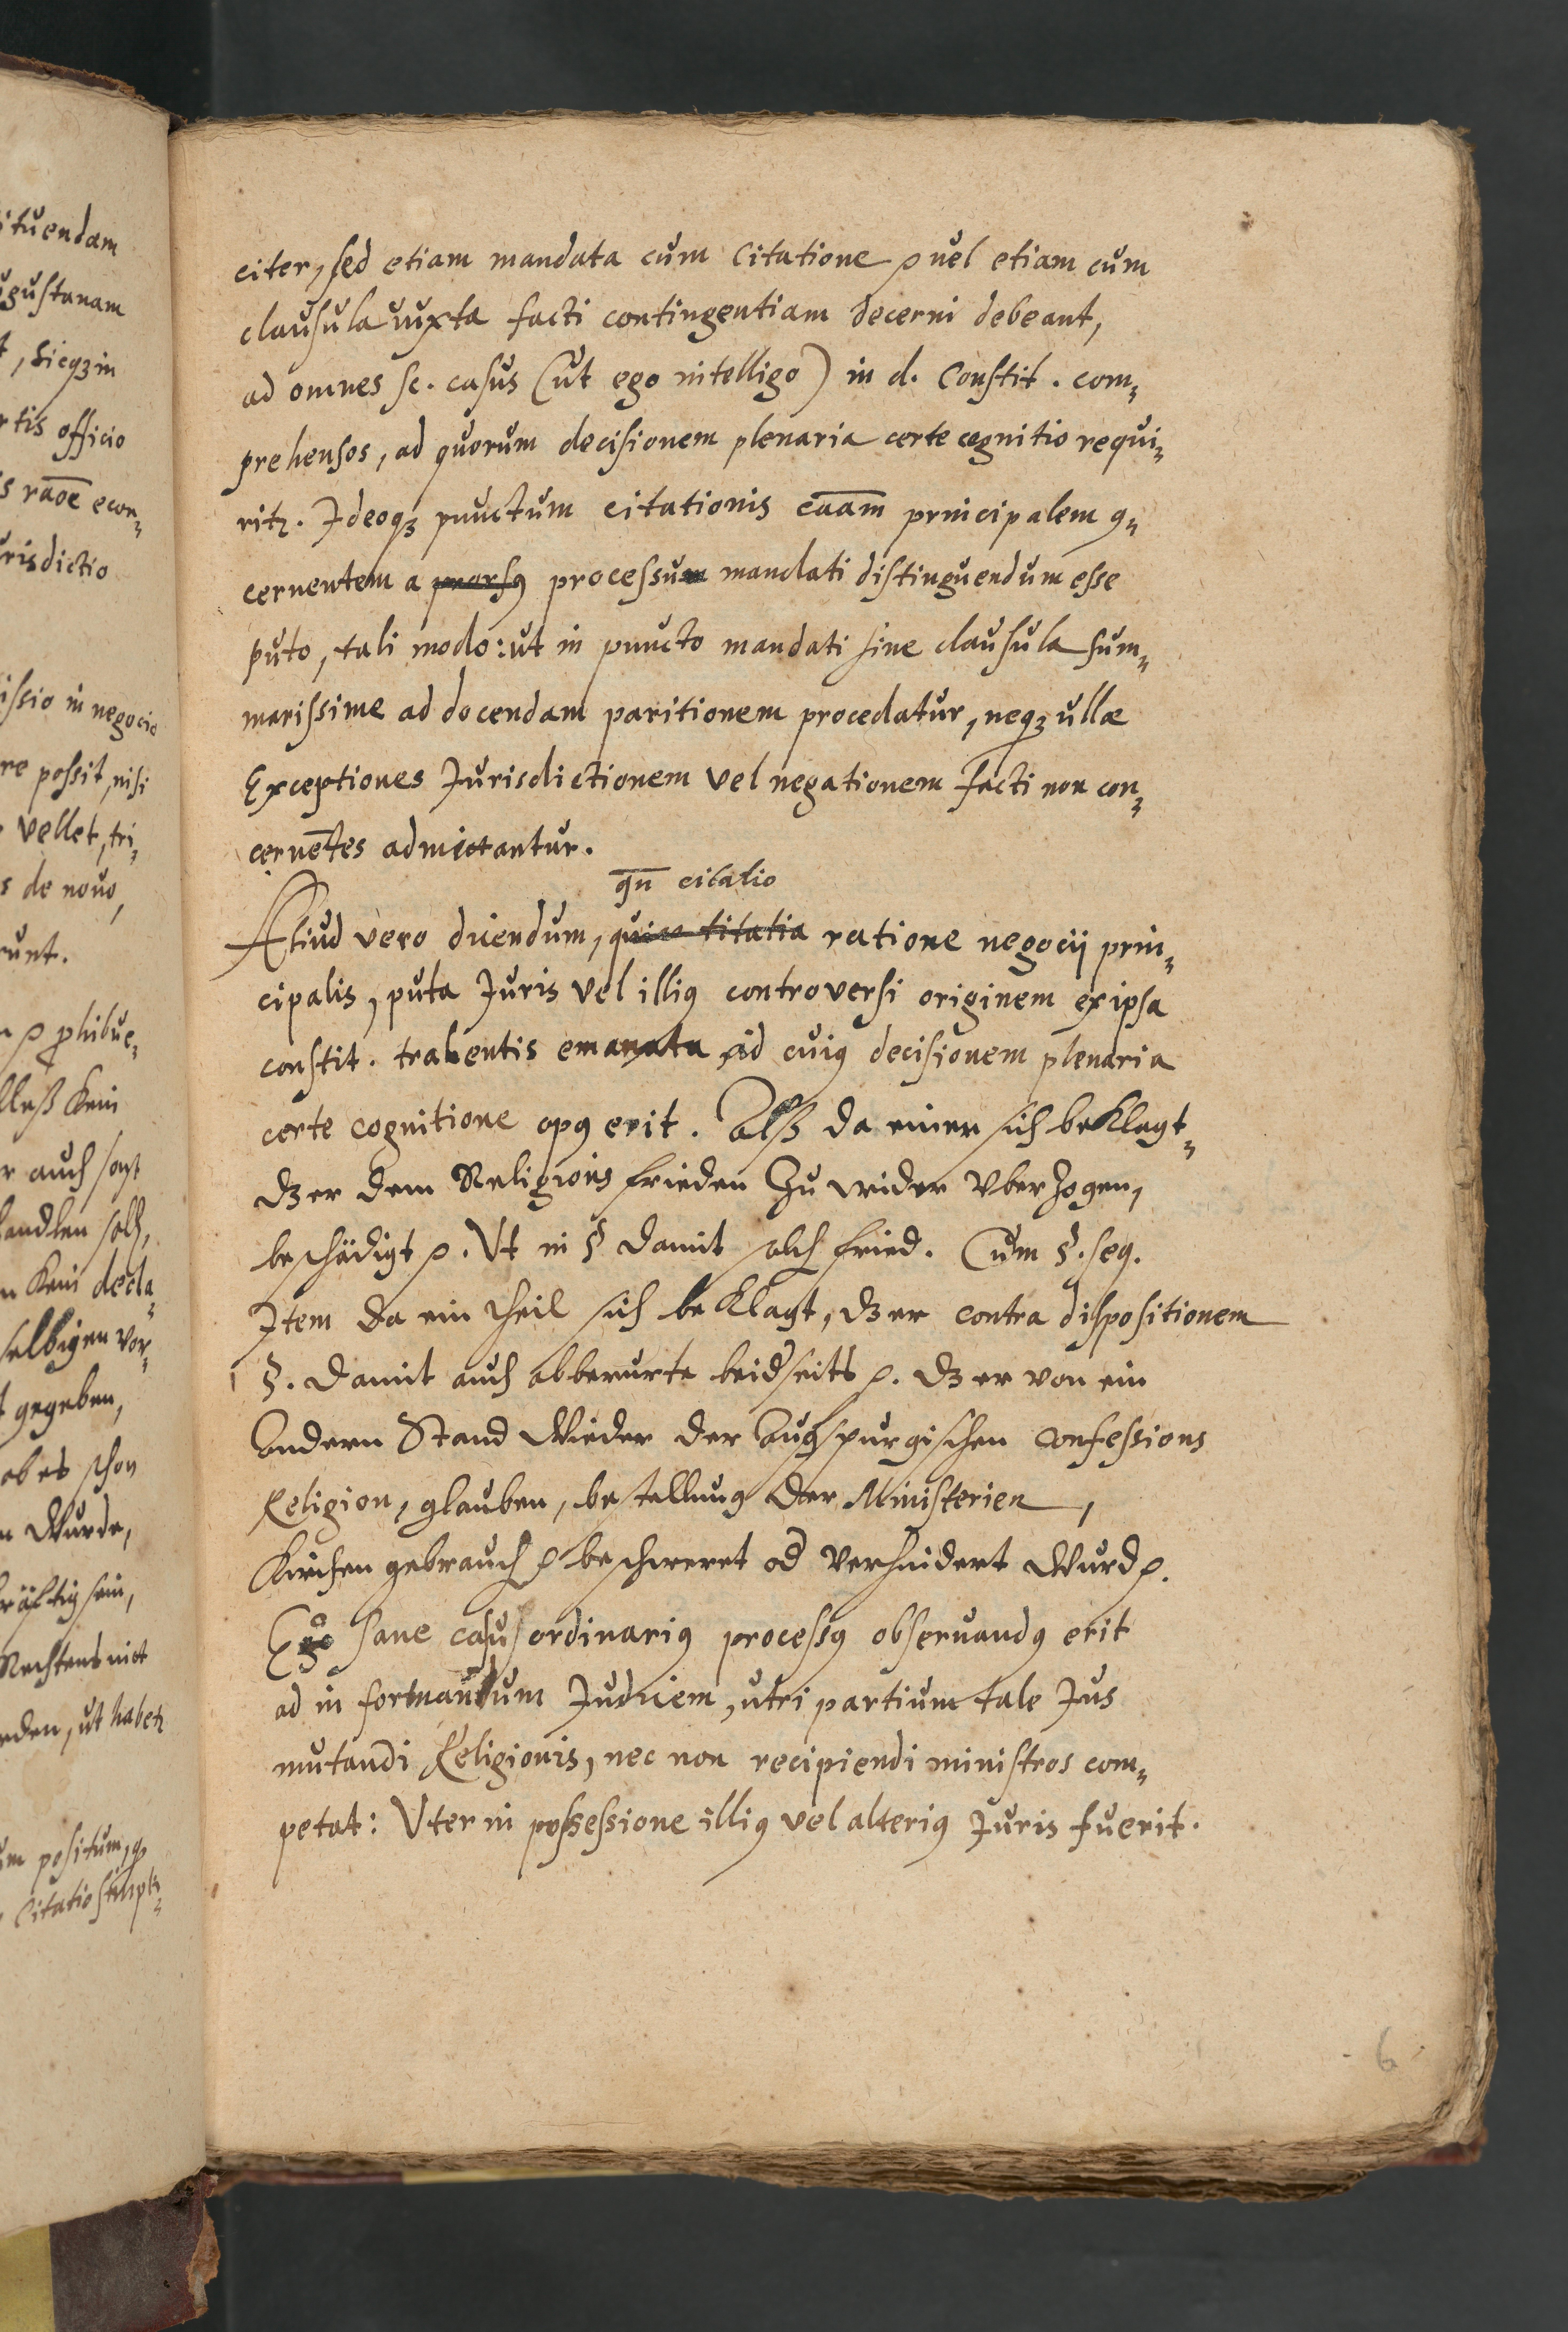 citer, sed etiam mandata cum Citatione ꝛ vel etiam cum
clausula iuxta facti contingentiam decerni debeant,
ad omnes sc. casus (ut ego intelligo) in d. Constit. com⸗
prehensos, ad quorum decisionem plenaria certe cognitio requi⸗
ritꝛ. Ideoqꝫ punctum citationis caāam principalem ꝯ⸗
cernentem a prorsꝰ processum mandati distinguendum esse
puto, tali modo: ut in puncto mandati sine clausula sum⸗
marissime ad docendam paritionem procedatur, neqꝫ ullæ
Exceptiones Jurisdictionem vel negationem facti non con⸗
cernētes admictantur.
qn̄ citatio
Aliud vero dicendum, ratione negocij prin⸗
cipalis, puta Juris vel illiꝰ controversi originem ex ipsa
constit. trahentis emanata ad cuiꝰ decisionem plenaria
certe cognitione opꝰ erit. Alß da einer sich beklagt⸗
dz er dem Religions frieden zu wider vberzogen,
beschädigt ꝛ. Vt in § damit solch fried. Cum §. seq.
Item da ein theil sich beklagt, dz er contra dispositionem
§. damit auch obberurte beidseits ꝛ. dz er von ein
Andern Stand Wieder der Augspurgischen Confessions
Religion, glauben, bestellung der Ministerien,
Kirchen gebrauch ꝛ beschweret od verhindert Wurd ꝛ.
Ego sane casu ordinariꝰ processꝰ observandꝰ erit
ad informandum Judicem, utri partium tale Jus
mutandi Religionis, nec non recipiendi ministros com⸗
petat: Vter in possessione illiꝰ vel alteriꝰ Juris fuerit.
6
ituendam
ugustanam
t, sicqꝫ in
rtis officio
s raōe econ⸗
urisdictio
issio in negocio
re possit, nisi
vellet, tri⸗
s de novo,
runt.
ꝛ phibue⸗
kein
r auch sonst
handlen soll,
n kein decla⸗
selbigen vor⸗
t gegeben,
ob es schon
n Wurde,
kräftig sein,
Rechtens nict
rden, ut habetꝛ
um positum,
Citatio simpli⸗